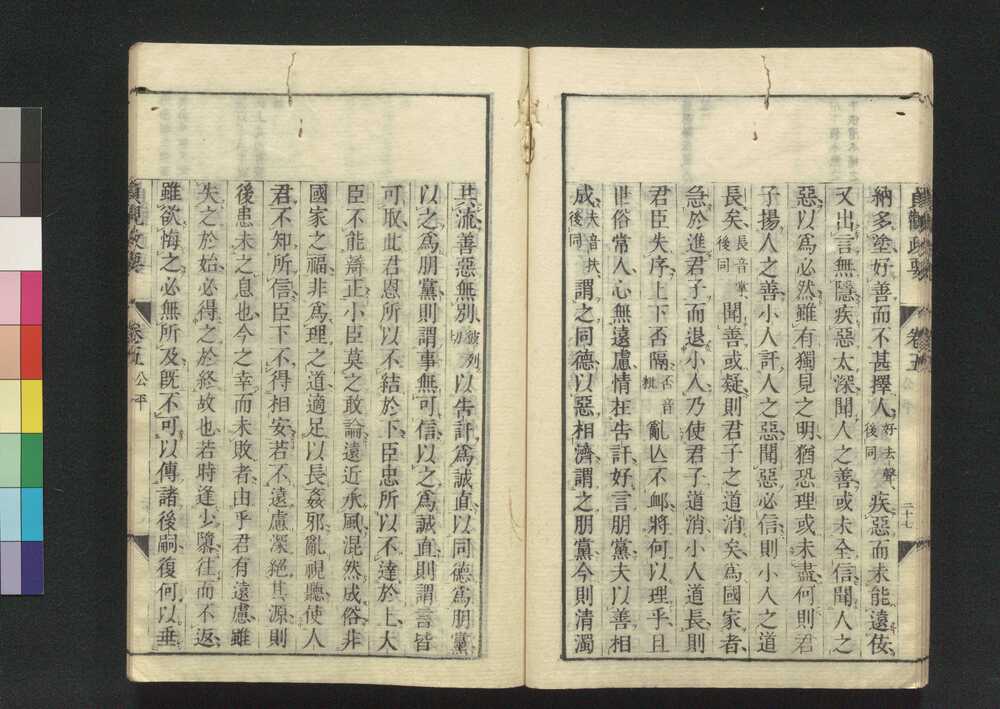 貞觀政要 卷五 公平 二十七
納多塗好善而不甚擇人好去聲後同疾惡而未能遠佞
又出言無隱疾惡太深聞人之善或未全信聞人之
惡以爲必然雖有獨見之明猶恐理或未盡何則君
子揚人之善小人訐人之惡聞惡必信則小人之道
長矣長音掌後同聞善或疑則君子之道消矣爲國家者
急於進君子而退小人乃使君子道消小人道長則
君臣失序上下否隔否音亂亡不卹將何以理乎且
世俗常人心無遠慮情在告訐好言朋黨夫以善相
成夫音扶後同謂之同德以惡相濟謂之朋黨今則清濁
其流善惡無別彼列切以告訐爲誠直以同德爲朋黨
以之爲朋黨則謂事無可信以之爲誠直則謂言皆
可取此君恩所以不結於下臣忠所以不達於上大
臣不能辯正小臣莫之敢論遠近承風混然成俗非
國家之福非爲理之道適足以長姦邪亂視聽使人
君不知所信臣下不得相安若不遠慮深絕其源則
後患未之息也今之幸而未敗者由乎君有遠慮雖
失之於始必得之於終故也若時逢少隳往而不返
雖欲悔之必無所及既不可以傳諸後嗣復何以垂
貞觀政要 卷五 公平